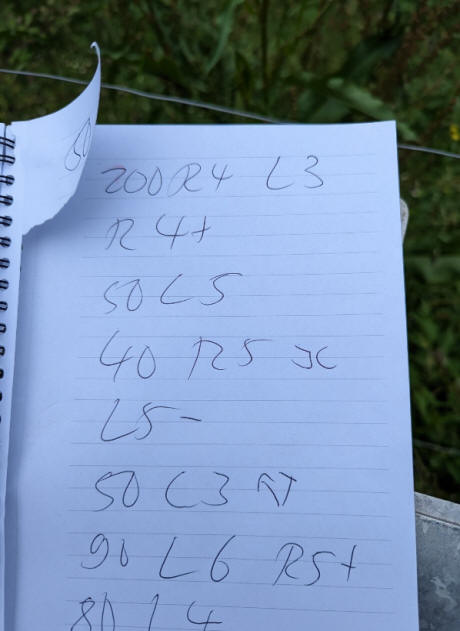 200 R4 L3
R 4+
50 L5
40 R5
L5-
50 L3
90 L6 R5+
80 L4